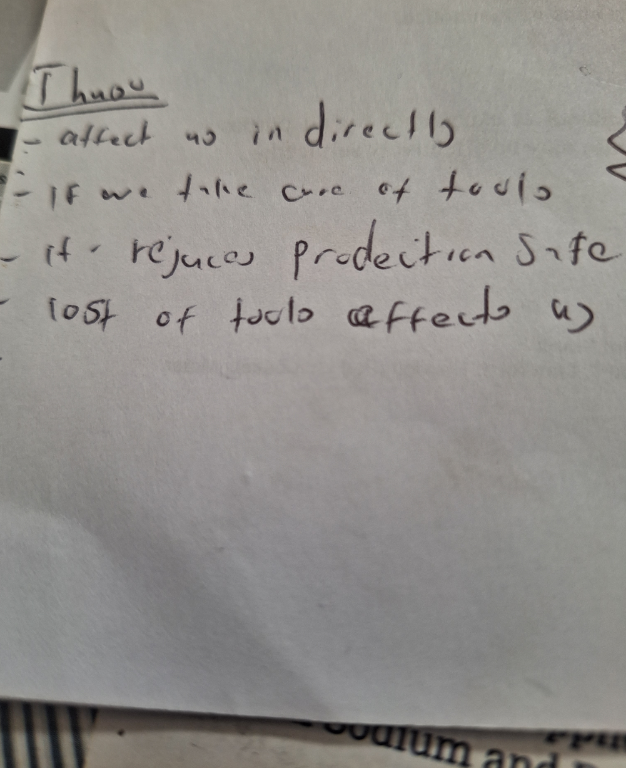 Thuou
- affect us indirectly
- If we take care of tools
- it rejuces prodection safe
- lost of tools affects us
odium and